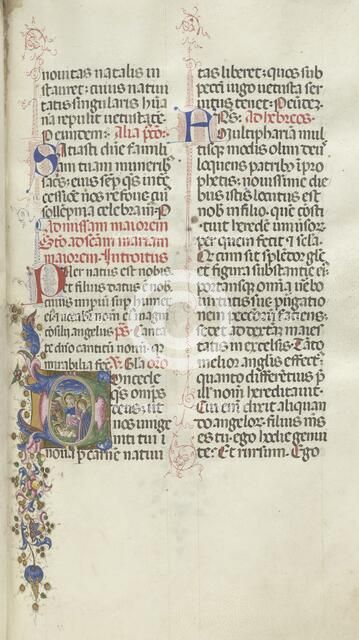 novitas natalis in
stauret: cuius nativi
tatis singularis hūa
na repulit vetustatē.
P eundem: Alia pō:
Satiasti dn̄e famili
am tuam muneribꝰ
sacris: eius semp̄ q̄s inte
cessiōe nos refove cuiꝰ
sollēpnia celebramꝰ P
Ad missam maiorem
Stō ad scām mariam
maiorem. Introitus
Puer natus est nobis
et filius datus ē nob
cuius impiū sup humer
eius: et vocabitur nomen eius magni
cōsilii angelus ps Canta
te dn̄o canticū novū: q
mirabilia fec̄ V Gl̄a oro
Concede
q̄s omps
deus: ut
nos unige
niti tui
nova p̄ carnē nativi
tas liberet: quos sub
peccī iugo vetusta ser
vitus tenet. P eundē.
Ad hebreos.
Multipharia mul
tisq̄ modis olim deus
loquens patribꝰ in pro
phetis: novissime die
bus istis locutus est
nob in filio. quē cōsti
tuit heredē univsor
per quem fecit et sc̄la.
Qui cum sit splēdor glē
et figura substantie eiꝰ
portansq̄ oīa verbo
virtutis sue purgatio
nem peccatorū faciens:
sedet ad dexterā maies
tatis in excelsis. Tāto
melior anglīs effectꝰ:
quanto differētius p̄
illis nomen hereditavit.
Cui enī dixit aliquan
do angelor̄: filius mēꝰ
es tu: ego hodie genui
te: Et rursum. Ego